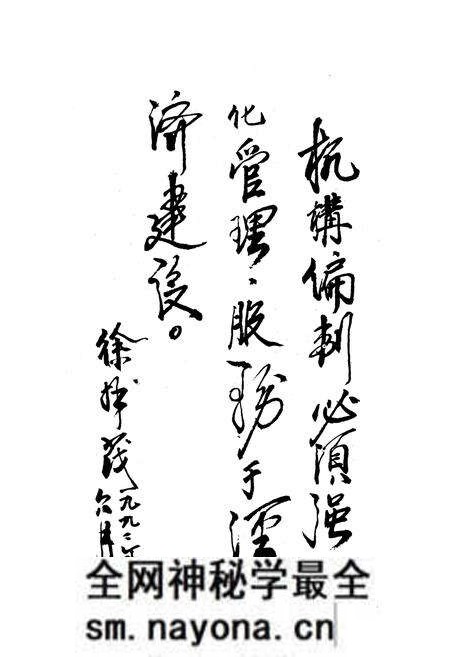 机構編制必須强
化管理、服務于經
济建设。
徐
一九九二年
六月
全网神秘学最全
sm.nayona.cn